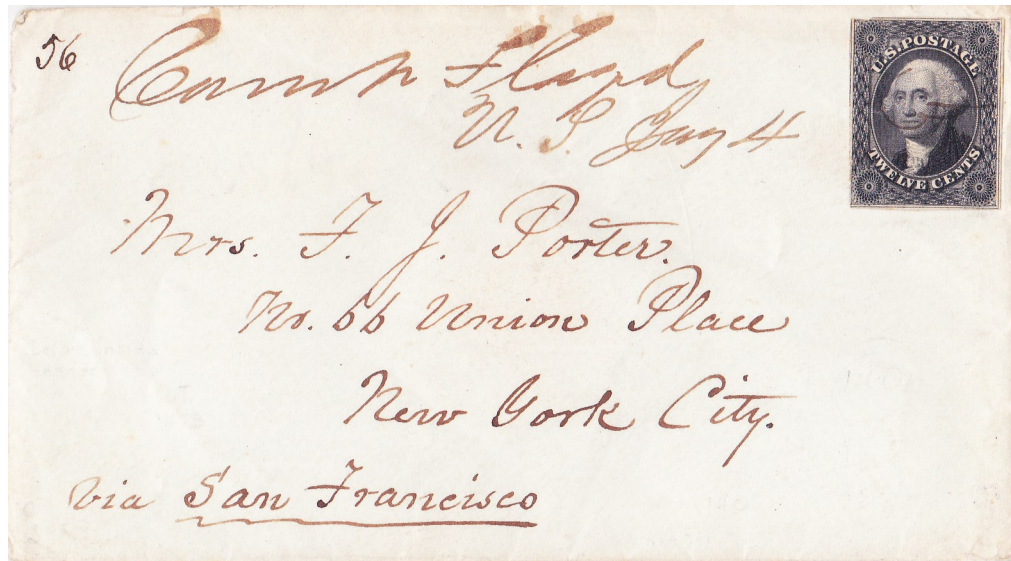 56
Camp Floyd
U. T. Jany 4
U.S. POSTAGE
TWELVE CENTS
Mrs. F. J. Porter.
No. 66 Union Place
New York City.
via San Francisco